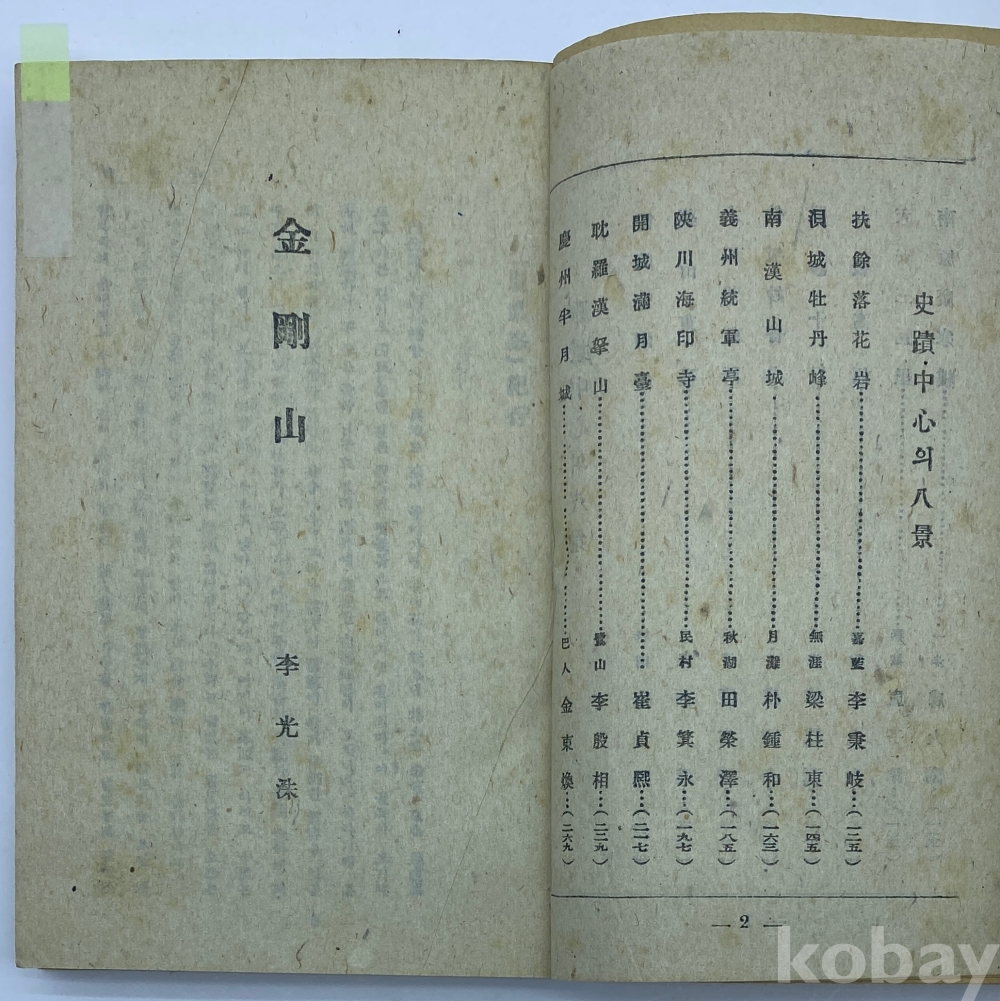 史蹟·中心의八景
扶餘落花岩……嘉藍 李秉岐…(一二五)
浿城牡丹峰……無涯 梁柱東…(一四五)
南漢山城……月灘 朴鍾和…(一六三)
義州統軍亭……秋湖 田榮澤…(一八五)
陜川海印寺……民村 李箕永…(一九七)
開城滿月臺……崔貞熙…(二一七)
耽羅漢拏山……鷺山 李殷相…(二二九)
慶州半月城……巴人 金東煥…(二六九)
— 2 —
金剛山
李光洙
kobay